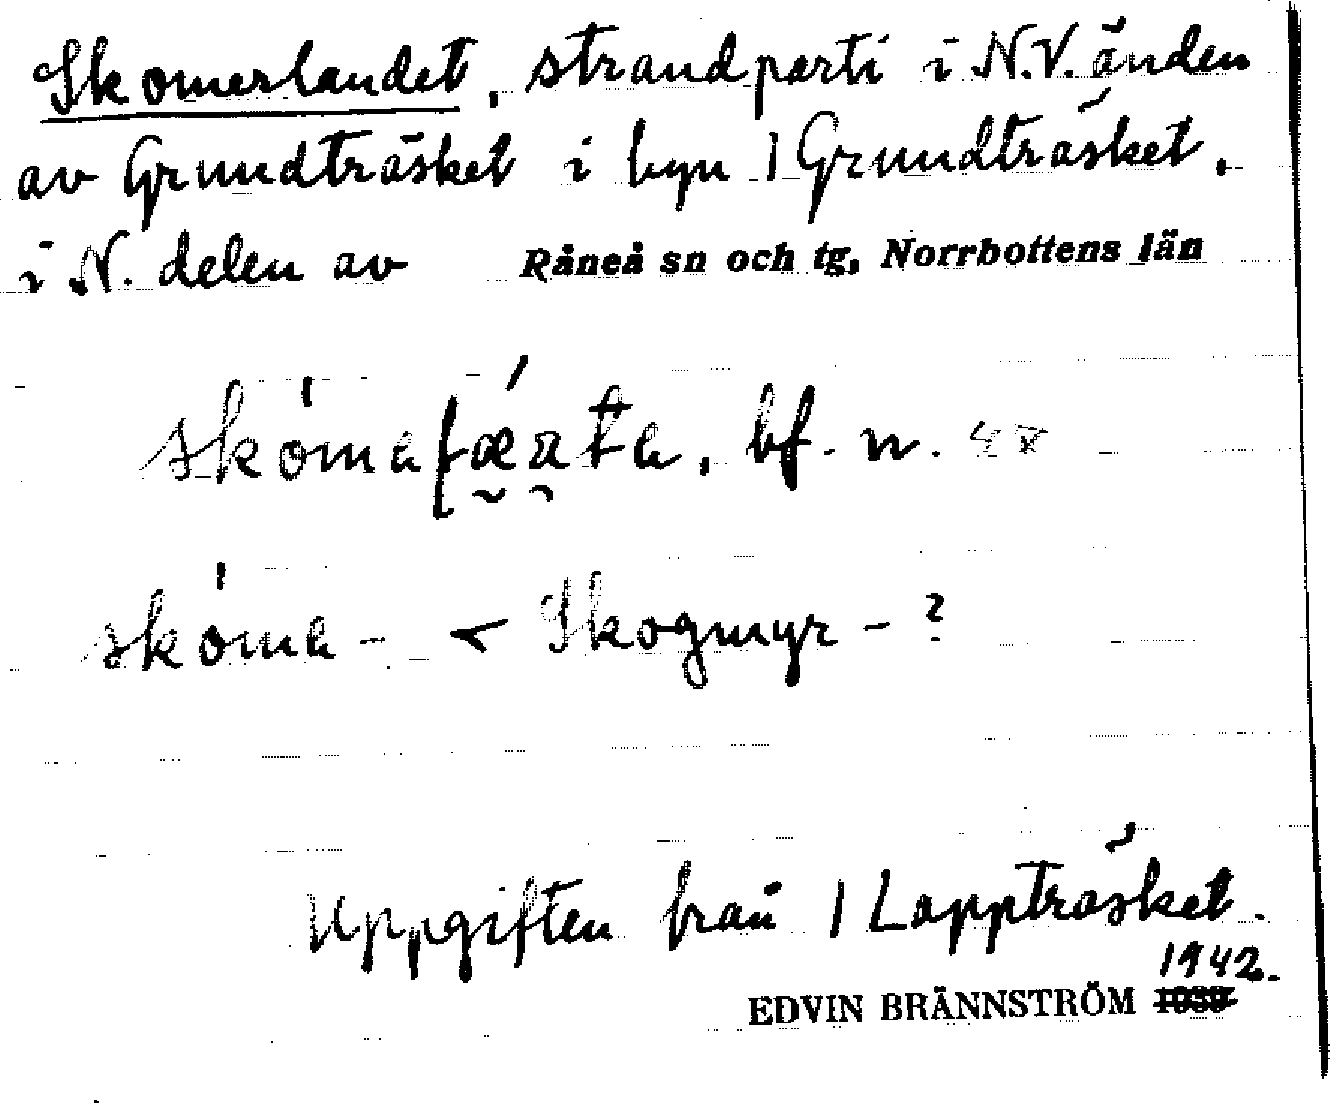 Skomerlandet, strandparti i N.V. änden
av Grundträsket i byn 1 Grundträsket,
i N. delen av Råneå sn och tg, Norrbottens län
bf. n.
skóma- < Skogmyr- ?
Uppgiften från 1 Lappträsket.
1942.
EDVIN BRÄNNSTRÖM 1939